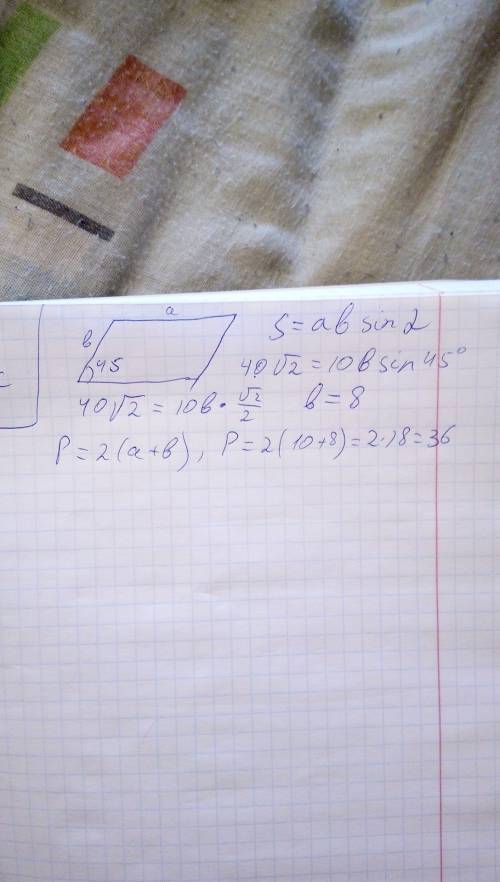 a
S = ab sin 2
в
45
40√2 = 10в sin 45°
40√2 = 10в · √2/2 в = 8
P = 2(a+в), P = 2(10+8) = 2·18 = 36